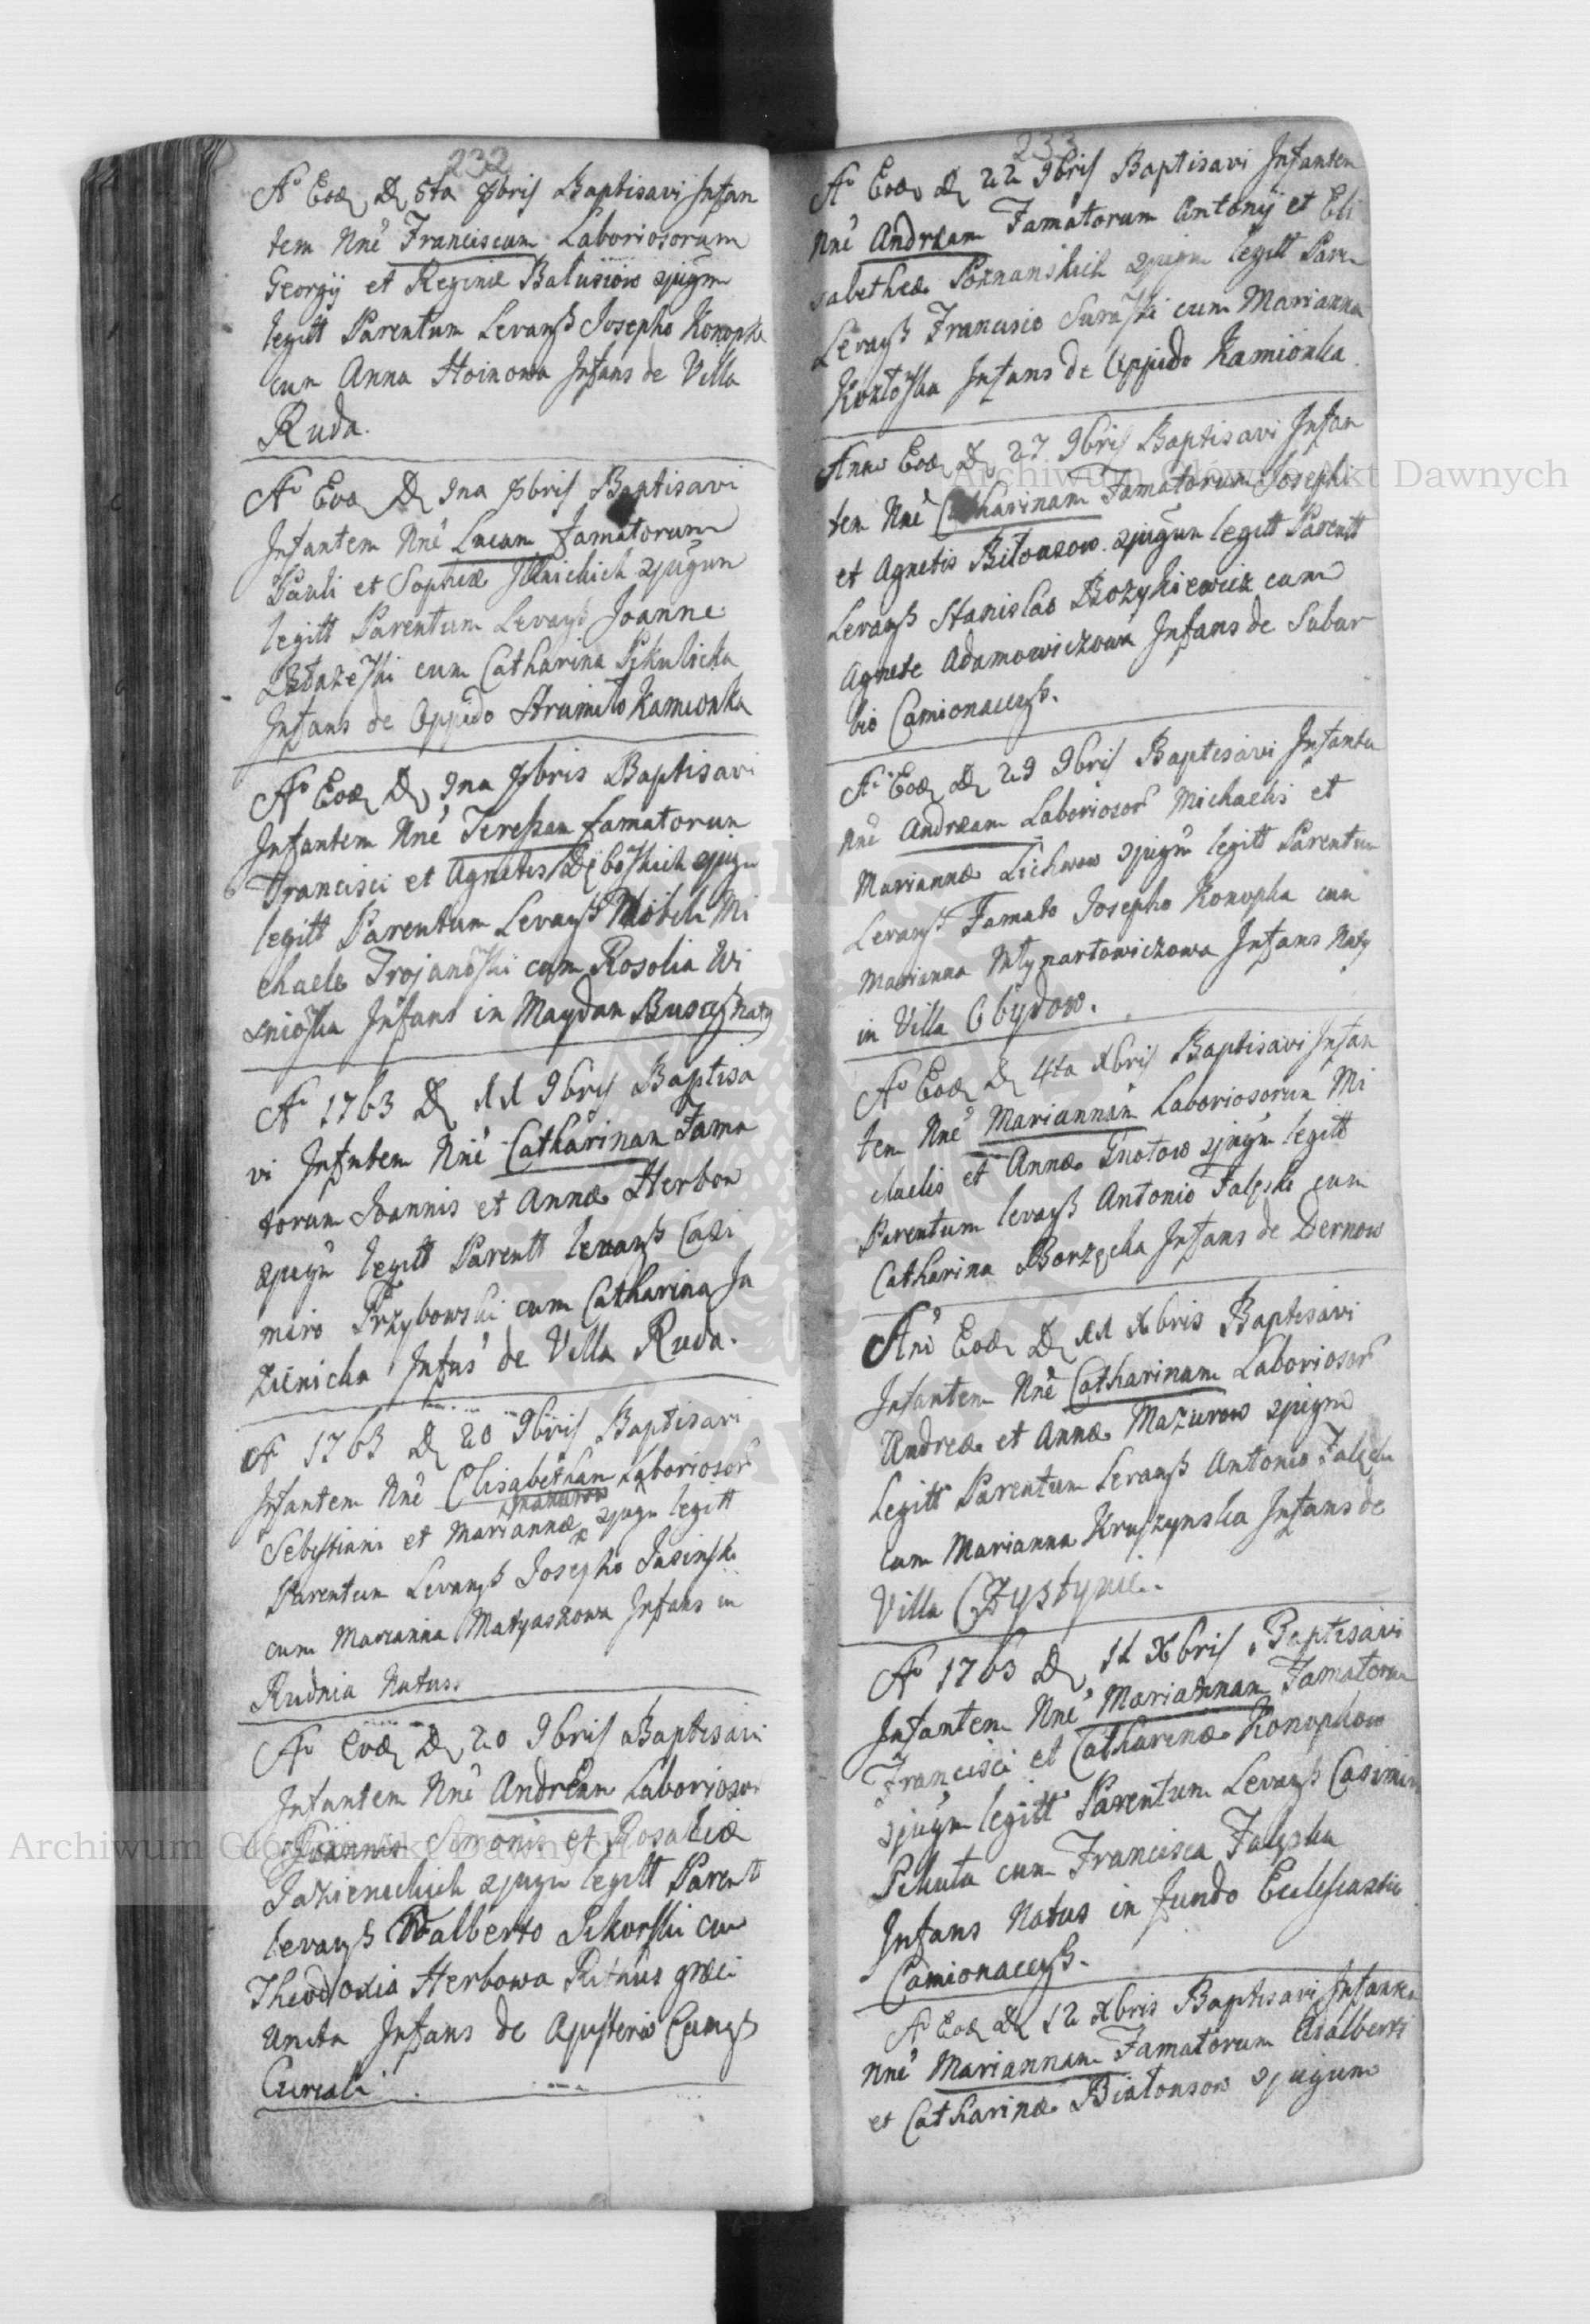 232
Aº Eod D 5ta 9bris Baptisavi Infan
tem Nnẽ Franciscum Laboriosorum
Georgij et Reginæ Balusiow
legitt Parentum Levanß Josepho Konopka
cum Anna Hoinowa Infans de Villa
Ruda.
Aº Eod D 9na 9bris Baptisavi
Infantem Nnẽ Lucam famatorum
Pauli et Sophiæ
legitt Parentum Levanß Joanne
cum Catharina Sikulicka
Infans de Oppido Strumilo Kamionka
Aº Eod D 9na 9bris Baptisavi
Infantem Nnẽ Tereßam famatorum
Francisci et Agnetis
legitt Parentum Levanß Nobili Mi
chaele Trojanoski cum Rosolia Wi
snioska Infans in Maydan
Aº 1763 D 11 9bris Baptisa
vi Infntem Nnẽ Catharinam Fama
torum Joannis et Annæ Herbow
legitt Parentt levanß Casi
miro Przybowski cum Catharina Ja
zienicka Infns de Villa Ruda.
A 1763 D 20 9bris Baptisavi
Infantem Nnẽ Elisabetham Laboriosor
Sebestiani et Mariannæ legitt
Parentum Levanß Josepho Jasinski
cum Marianna Matyaszowa Infans in
Rudnia Natus.
Aº Eod D 20 9bris Baptisavi
Infantem Nnẽ Andream Laborioso
Simonis et Rosaliæ
Jazienickich legitt Parent
levanß Walberto Sikorski cum
Theodoxia Herbowa Rithus græci
Unita Infans de
Curiali
233
Aº Eod D 22 9bris Baptisavi Infantem
Nnẽ Andream Famatorum Antonij et Eli
sabethæ Poznanskich legitt Paren
Levanß Francisio Suraski cum Marianna
Kozloska Infans de Oppido Kamionka
Anno Eod D 27 9bris Baptisavi Infan
tem Nnẽ Catharinam Famatorum Josephi
et Agnetis legitt Parentt
Levanß Stanislao Bozykiewicz cum
Agnete Adamowiczowa Infans de Subur
bio Camionacenß.
Aº Eod D 29 9bris Baptisavi Infante
Nnẽ Andream Laboriosor Michaelis et
Mariannæ Lichwow legitt Parentum
Levanß Famato Josepho Konopka cum
Marianna Mlynartowiczowa Infans Naty
in Villa Obydow.
Aº Eod D 4ta Xbris Baptisavi Infan
tem Nnẽ Mariannam Laboriosorum Mi
chaelis et Annæ Gnotow legitt
Parentum levanß Antonio Falęcki cum
Catharina Borzęcka Infans de Dernow
Anõ Eod D 11 Xbris Baptisavi
Infantem Nnẽ Catharinam Laboriosor
Andreæ et Annæ Mazurow
Legitt Parentum Levanß Antonio Falęcki
cum Marianna Kruszynska Infans de
Villa Czystynie.
Aº 1763 D 11 Xbris Baptisavi
Infantem Nnẽ Mariannam Famatorum
Francisci et Catharinæ Konopkow
legitt Parentum Levanß Casimiro
Pikuta cum Francisca Falęcka
Infans Natus in fundo Ecclesiastic
Camionacenß.
Aº Eod D 12 Xbris Baptisavi Infante
Nnẽ Mariannam Famatorum Adalberti
et Catharinæ Bialonsow
Archiwum Główne Akt Dawnych
Archiwum Główne Akt Dawnych